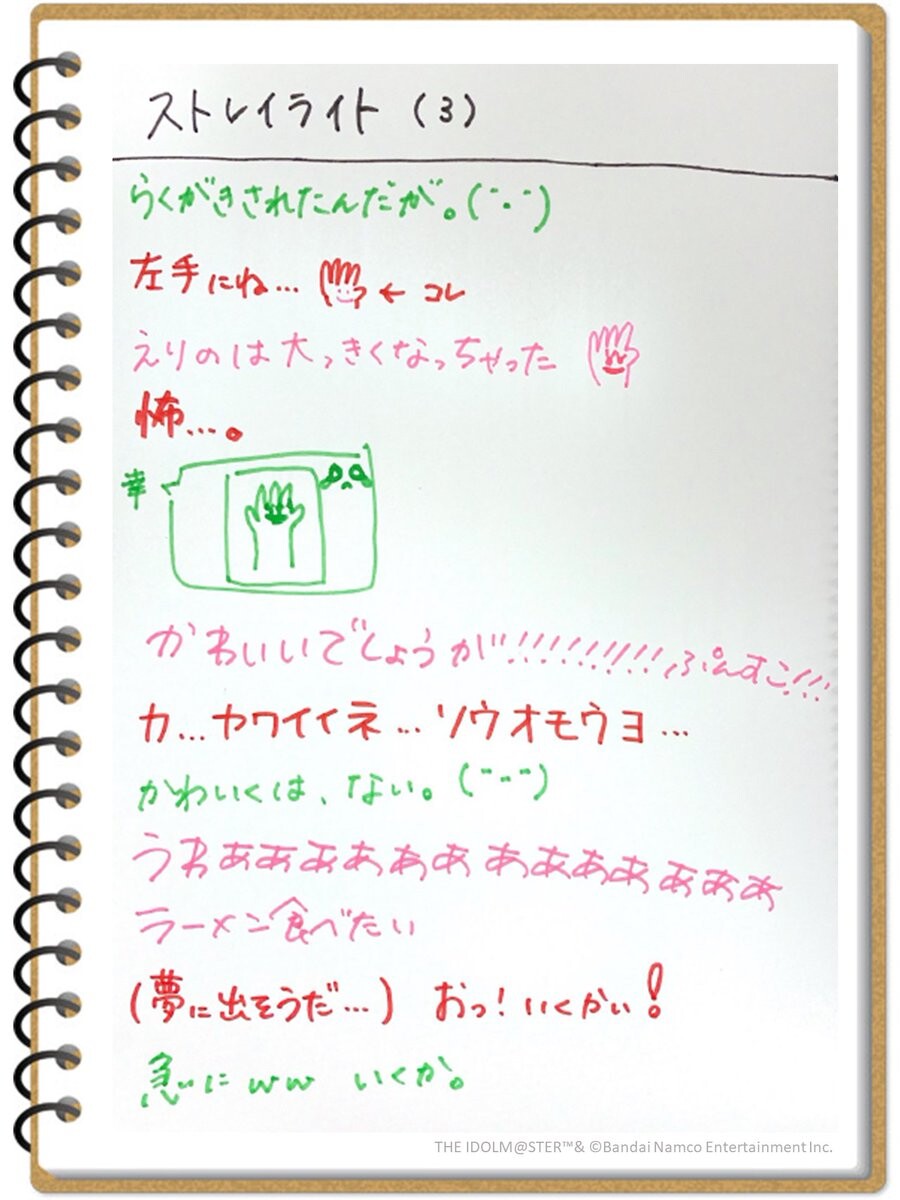 ストレイライト (3)
らくがきされたんだが。(¨・¨)
左手にね… ← コレ
えりのは大っきくなっちゃった
怖…。
幸
かわいいでしょうが!!!!!!!!!ぷんすこ!!!
カ…ヤワイイネ…ソウオモウヨ…
かわいくは、ない。(¨--¨)
うわぁぁぁぁぁぁぁぁぁぁぁぁぁ
ラーメン食べたい
(夢に出そうだ…) おっ!いくかい!
急にww いくか。
THE IDOLM@STER™& ©Bandai Namco Entertainment Inc.